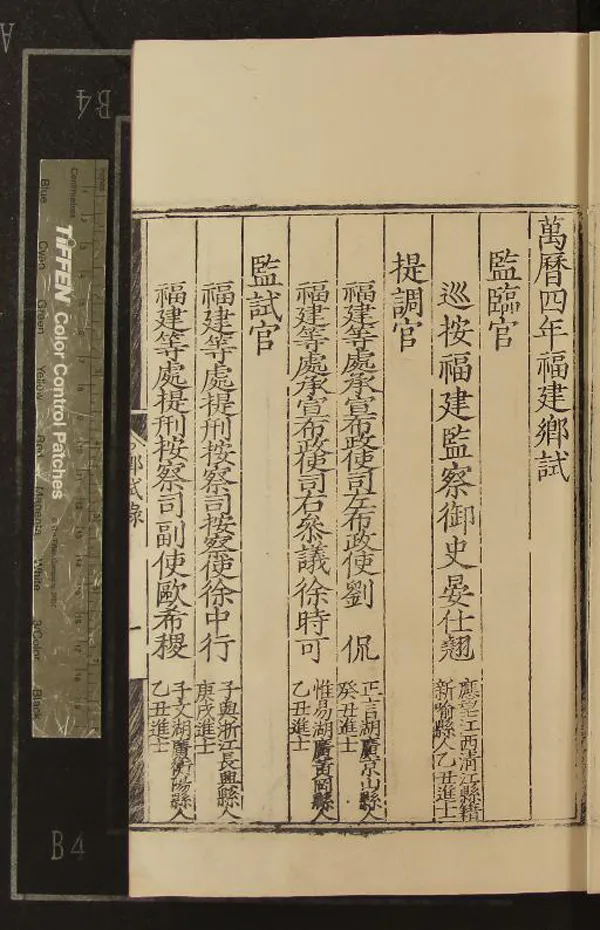 萬曆四年福建鄉試
監臨官
巡按福建監察御史晏仕翹
應望江西清江縣籍
新喻縣人乙丑進士
提調官
福建等處承宣布政使司左布政使劉 侃
正言湖廣京山縣人
癸丑進士
福建等處承宣布政使司右叅議徐時可
惟易湖廣黃岡縣人
乙丑進士
監試官
福建等處提刑按察司按察使徐中行
子與浙江長興縣人
庚戌進士
福建等處提刑按察司副使歐希稷
子文湖廣衡陽縣人
乙丑進士
鄉試錄
一
TIFFEN Color Control Patches
Blue
Cyan
Green
Yellow
Red
Magenta
White
3/Color
Black
Centimetres
Inches
B4
B4
A